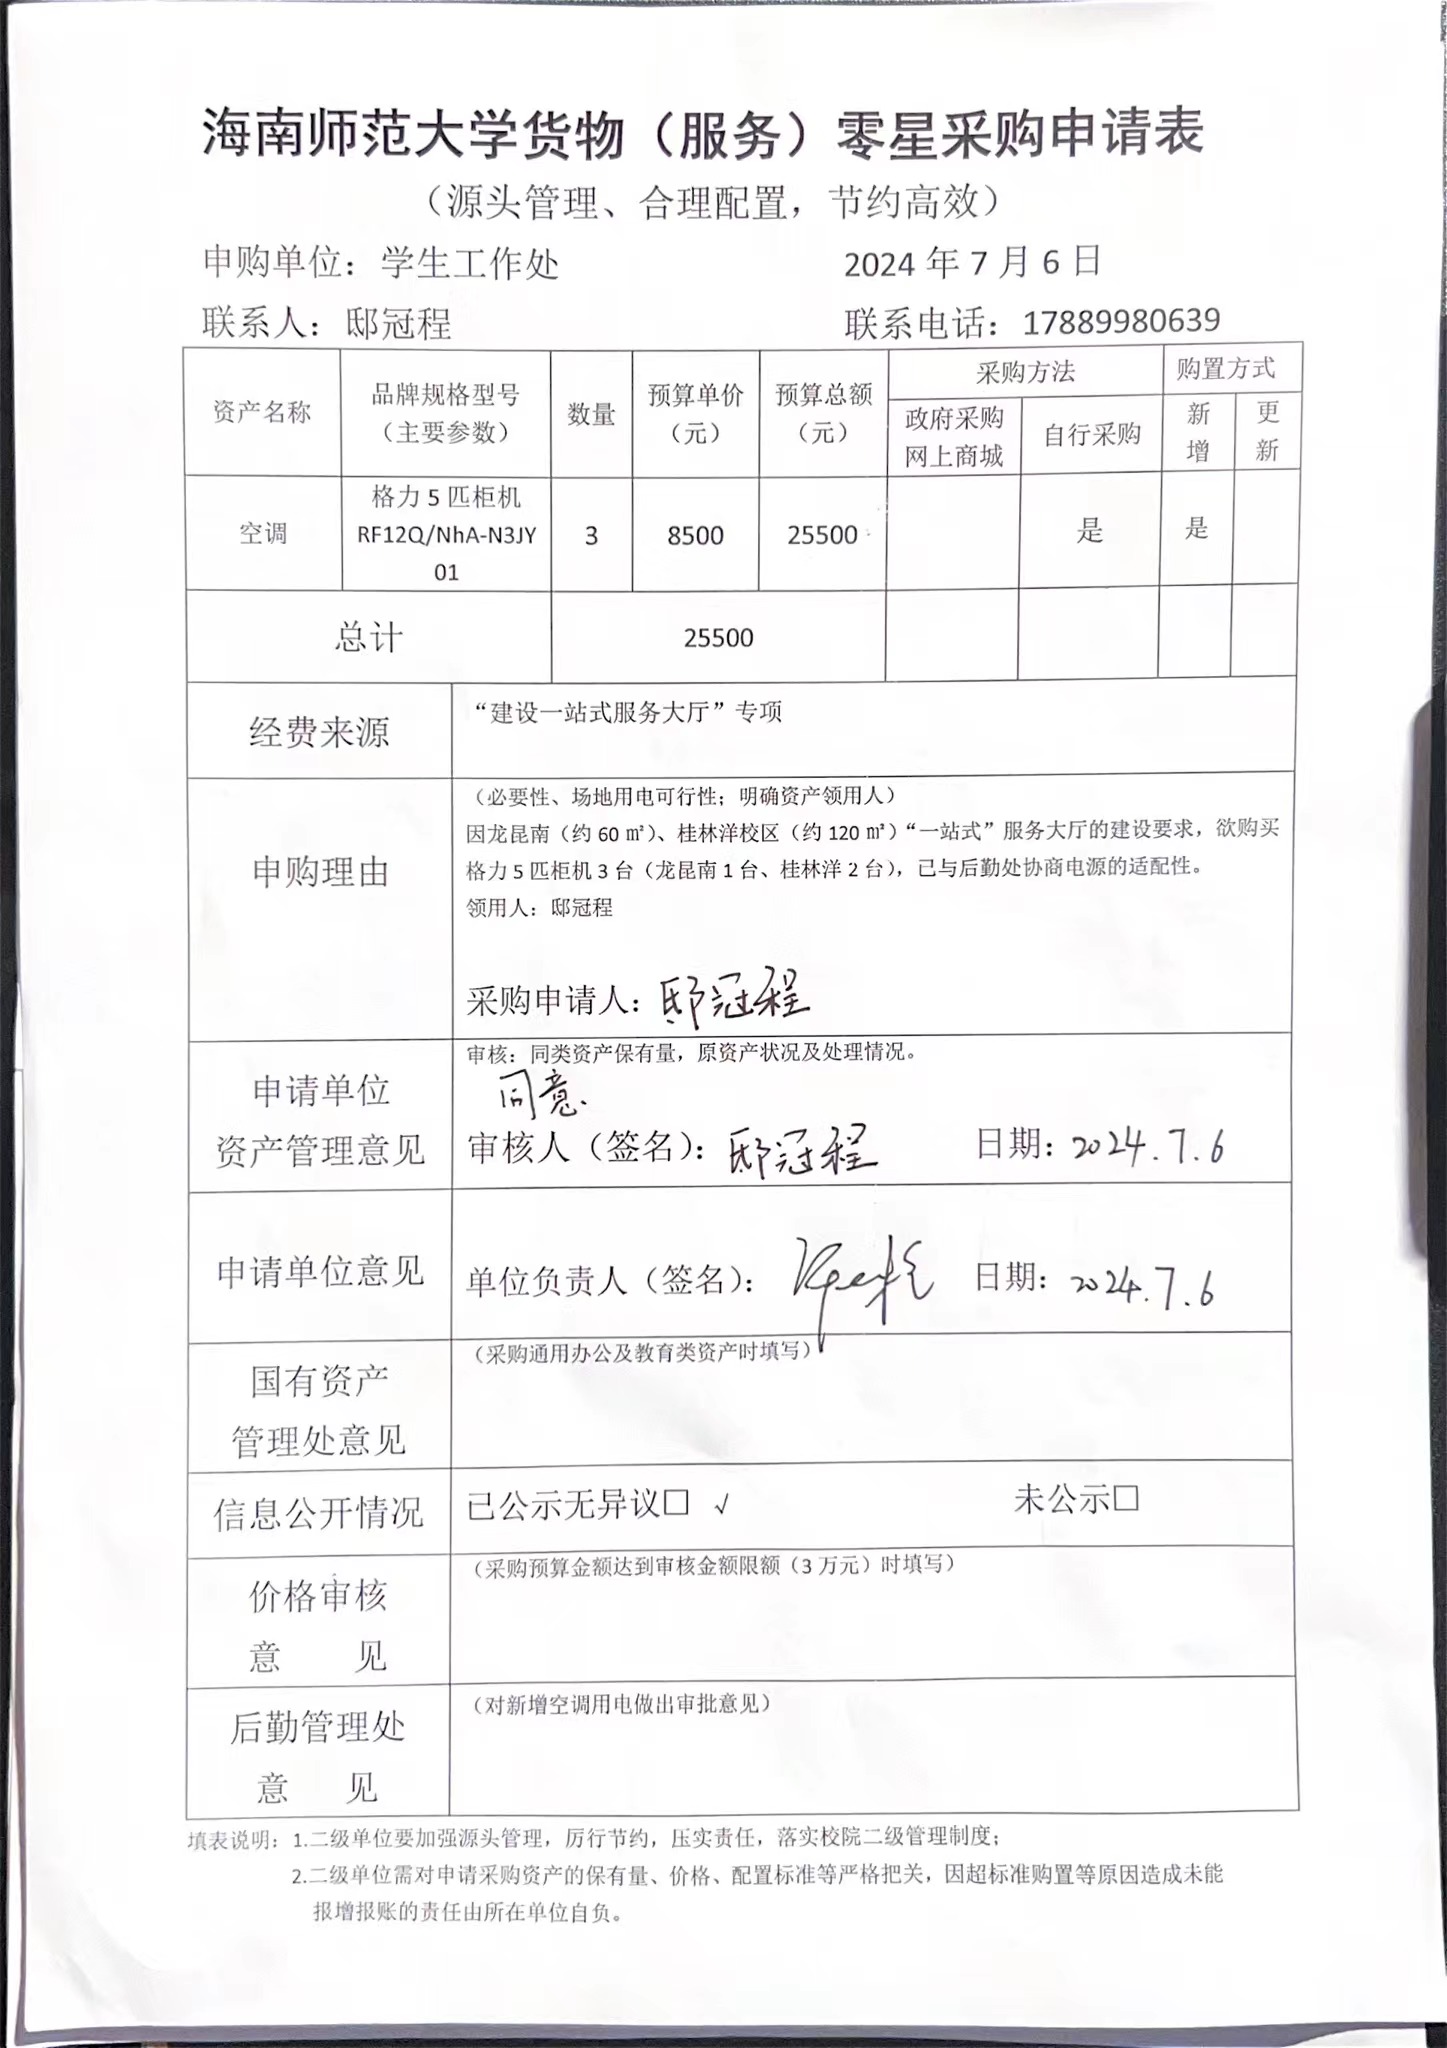 海南师范大学货物（服务）零星采购申请表
（源头管理、合理配置，节约高效）
申购单位：学生工作处 2024 年 7 月 6 日
联系人：邸冠程 联系电话：17889980639
资产名称 品牌规格型号（主要参数） 数量 预算单价（元） 预算总额（元） 采购方法 购置方式
政府采购网上商城 自行采购 新增 更新
空调 格力 5 匹柜机 RF12Q/NhA-N3JY01 3 8500 25500 是 是
总计 25500
经费来源 “建设一站式服务大厅”专项
申购理由
（必要性、场地用电可行性；明确资产领用人）
因龙昆南（约 60 ㎡）、桂林洋校区（约 120 ㎡）“一站式”服务大厅的建设要求，欲购买
格力 5 匹柜机 3 台（龙昆南 1 台、桂林洋 2 台），已与后勤处协商电源的适配性。
领用人：邸冠程
采购申请人：邸冠程
申请单位
资产管理意见
审核：同类资产保有量，原资产状况及处理情况。
同意
审核人（签名）：邸冠程 日期：2024.7.6
申请单位意见 单位负责人（签名）： 日期：2024.7.6
国有资产
管理处意见
（采购通用办公及教育类资产时填写）
信息公开情况 已公示无异议□ √ 未公示□
价格审核
意 见
（采购预算金额达到审核金额限额（3 万元）时填写）
后勤管理处
意 见
（对新增空调用电做出审批意见）
填表说明：1.二级单位要加强源头管理，厉行节约，压实责任，落实校院二级管理制度；
2.二级单位需对申请采购资产的保有量、价格、配置标准等严格把关，因超标准购置等原因造成未能
报增报账的责任由所在单位自负。